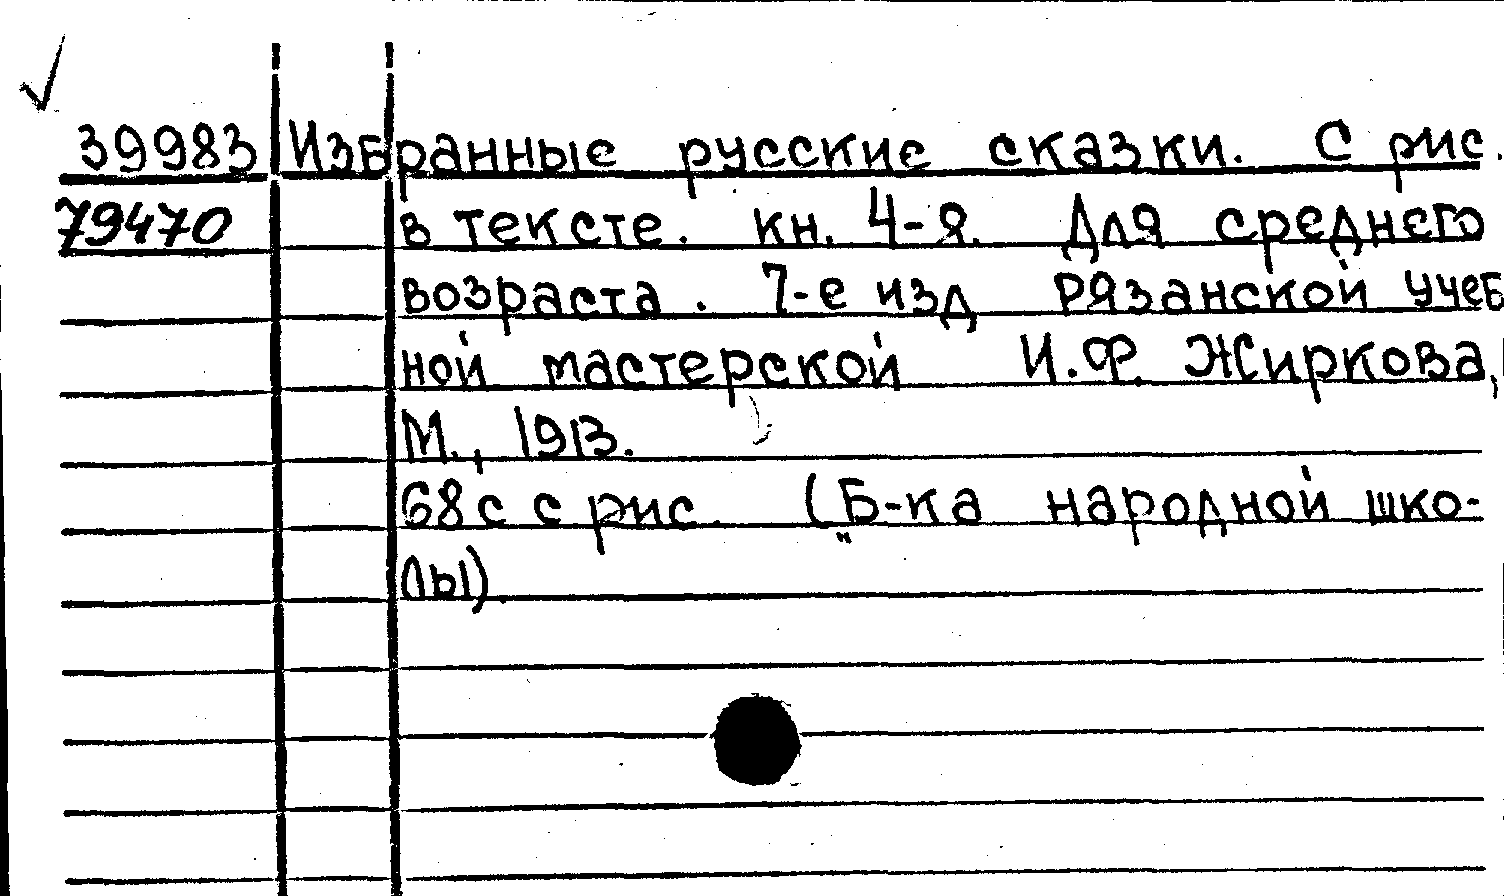 39983 Избранные русские сказки. С рис.
79470 в тексте. кн. 4-я. Для среднего
возраста. 7-е изд Рязанской учеб
ной мастерской И.Ф. Жиркова,
М., 1913.
68 с с рис. („Б-ка народной шко-
лы).